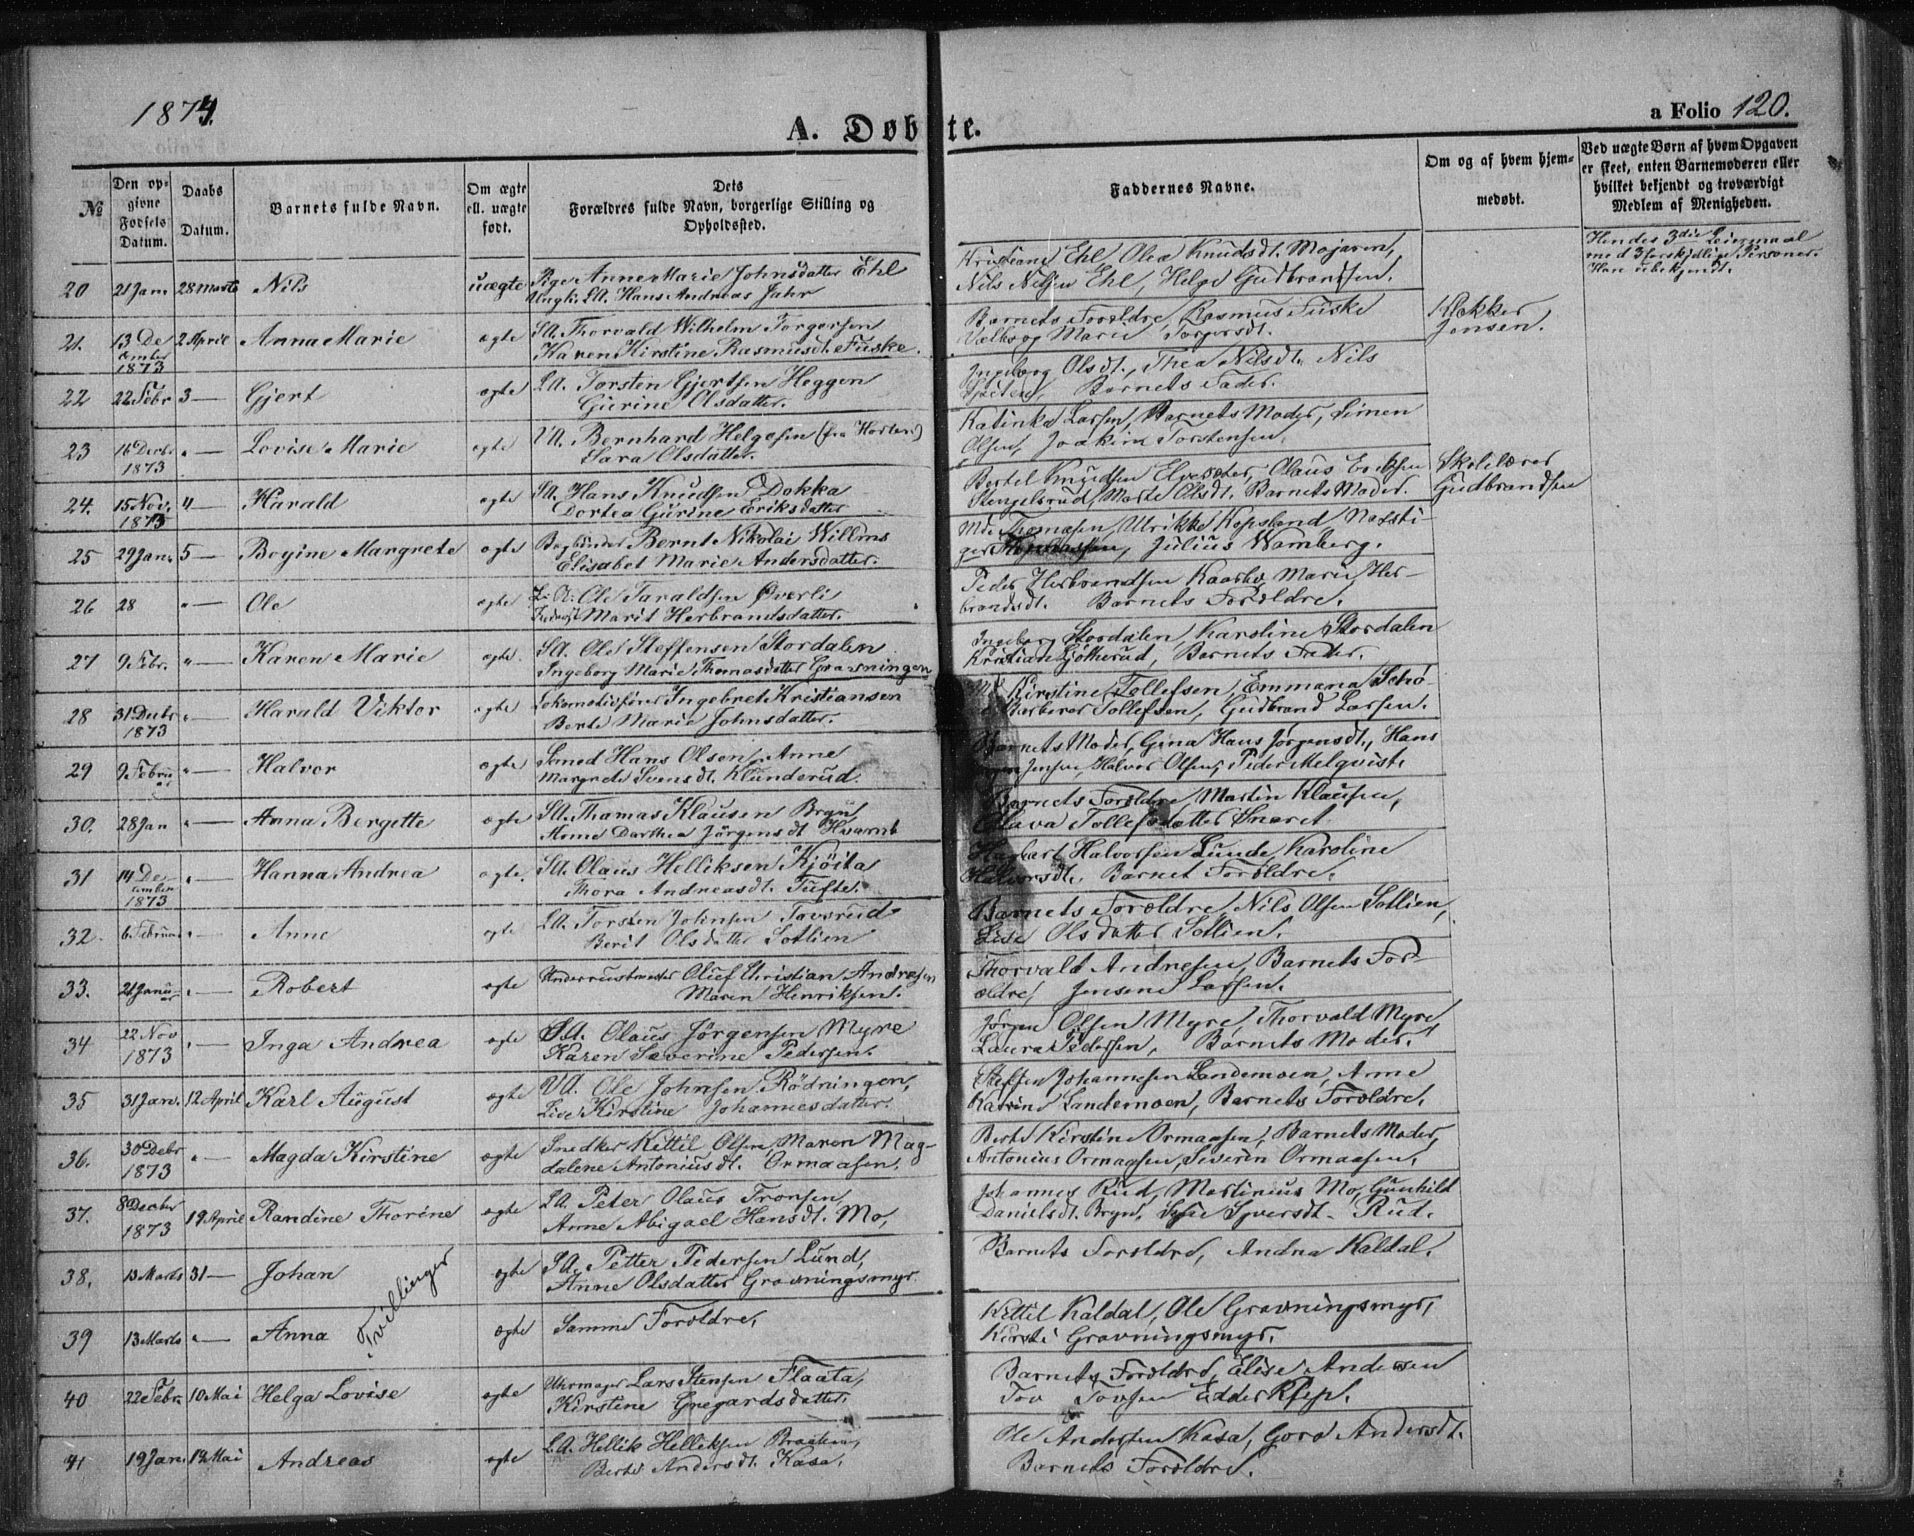 1874.
A. Døbte.
a Folio 120.
No
Den op-
givne
Fødsels
Datum.
Daabs
Datum.
Barnets fulde Navn.
Om ægte
ell. uægte
født.
Dets
Forældres fulde Navn, borgerlige Stilling og
Opholdssted.
Faddernes Navne.
Om og af hvem hjem-
medøbt.
Ved uægte Børn af hvem Opgaven
er skeet, enten Barnemoderen eller
hvilket bekjendt og troværdigt
Medlem af Menigheden.
20 21 Jan 28 Marts Nils uægte Pige Anne Marie Johnsdatter Ehl
Ungk. SA. Hans Andreas Jahr
Ehl, Olea Knudsdt. Mojaren,
Nils Nilsen Ehl, Helge Gudbrandsen.
Hendes 3die Leiermaal
med 3 forskjellige Personer.
Han ubekjendt.
21. 13 De
cember
1873 2 April Anna Marie ægte SA. Thorvald Wilhelm Torgersen
Karen Kirstine Rasmusdt. Fuske.
Barnets Forældre, Rasmus Fuske
og Marie Torgersdt.
Klokker
Jensen.
22 22 Febr 3 — Gjert ægte LA. Torsten Gjertsen Heggen
Gurine Olsdatter.
Ingeborg Olsdt., Thea Nilsdt. Nils
Barnets Fader.
23 16 Decbr
1873 " — Lovise Marie ægte VA. Bernhard Helgesen (fra Horten)
Sara Olsdatter.
Katinka Larsen, Barnets Moder, Simen
Olsen, Joakim Torstensen.
24. 15 Nov.
1873 4 — Harald ægte SA. Hans Knudsen Dokka
Dortea Gurine Eriksdatter
Bertel Knudsen Elvesæter, Olaus Eriksen
Stengelsrud, Marte Olsdt. Barnets Moder.
Skolelærer
Gudbrandsen
25 29 Jan. 5 — Boyine Margrete ægte Bogbinder Bernt Nikolai Willms
Elisabet Marie Andersdatter.
Thomasen, Ulrikke Kopsland,
Julius Wamberg.
26 28 " — Ole ægte Ole Taraldsen Øverli
Marit Herbrandsdatter.
Peder Herbrandsen Kaarbø, Marie Her-
brandsdt. Barnets Forældre.
27 9 Febr. " — Karen Marie ægte. SA. Ole Steffensen Stordalen
Ingeborg Marie Thomasdatter Gravningen
Ingeborg Stordalen, Karoline Stordalen
Kristian Barnets Fader.
28 31 Decbr
1873 " — Harald Viktor ægte Lokomotivfører Ingebret Kristiansen
Berte Marie Johnsdatter.
Kirstine Tollefsen, Emmana
Barberer Tollefsen, Gudbrand Larsen.
29 9 Febru
ar " — Halvor ægte Smed Hans Olsen, Anne
Margrete Svensdt. Klunderud.
Barnets Moder, Gina Hans Jørgensdt., Hans
Jensen, Halvor Olsen, Peder Melqvist.
30. 28 Jan " — Anna Bergette ægte SA. Thomas Klausen Bryn
Anne Darthea Jørgensdt Hvamb
Barnets Forældre, Martin Klausen,
Olava Tollefsdatter Snaret.
31 14 De
cember
1873 " — Hanna Andrea ægte. SA. Olaus Helliksen Kjøita
Thora Andreasdt. Tufte.
Halvorsen Lunde, Karoline
Halvorsdt. Barnet Forældre.
32. 6 Februar " — Anne ægte LA. Torsten Johnsen Tovsrud
Berit Olsdatter Sotlien
Barnets Forældre, Nils Olsen Sotlien,
Lise Olsdatter Sotlien.
33. 21 Janu
ar " — Robert ægte Underrustmester Oluf Christian Andresen
Maren Henriksen.
Thorvald Andresen, Barnets For-
ældre, Jensine Larsen.
34 22 Nov
1873 " — Inga Andrea ægte SA. Olaus Jørgensen Myre
Karen Severine Pedersen.
Jørgen Olsen Myre, Thorvald Myre
Laura Pedersen, Barnets Moder.
35 31 Jan. 12 April Karl August ægte VA. Ole Johnsen Rødningen,
Live Kirstine Johannesdatter.
Steffen Johannesen Landemoen, Anne
Katrine Landemoen, Barnets Forældre.
36. 30 Decbr
1873 " — Magda Kirstine ægte Snedker Kittil Olsen, Maren Mag-
dalene Antoniusdt. Ormaasen.
Berte Kirstine Ormaasen, Barnets Moder,
Antonius Ormaasen, Severin Ormaasen.
37. 8 Decbr
1873 19 April Randine Thorine ægte LA. Peter Olaus Tronsen
Anne Abigael Hansdt. Mo,
Johannes Rud, Martinius Mo, Gunhild
Danielsdt. Bryn, Syverdt. Rud.
38. 13 Marts 31 — Johan ægte SA. Petter Pedersen Lund,
Anne Olsdatter Gravningsmyr.
Barnets Forældre, Andrea Kaldal.
Tvillinger
39 13 Marts " — Anna ægte Samme Forældre,
Kittil Kaldal, Ole Gravningsmyr,
Kirsti Gravningsmyr.
40 22 Febr. 10 Mai Helga Lovise ægte Uhrmager Lars Stensen Flaata,
Kirstine Gregardsdatter.
Barnets Forældre, Elise Andersen
Tov Tovsen Edder
41 19 Jan. 14 Mai Andreas ægte LA. Hellik Helliksen Braaten,
Berte Andersdt. Kasa.
Ole Andersen Kasa, Goro Andersdt.
Barnets Forældre.